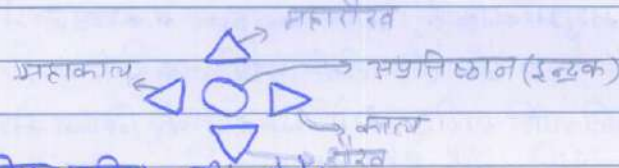 महारौरव
महाकाल
अप्रतिष्ठान (इन्द्रक)
काल
रौरव